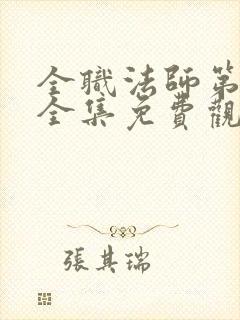 全職法師第
全集免費觀
張其瑞